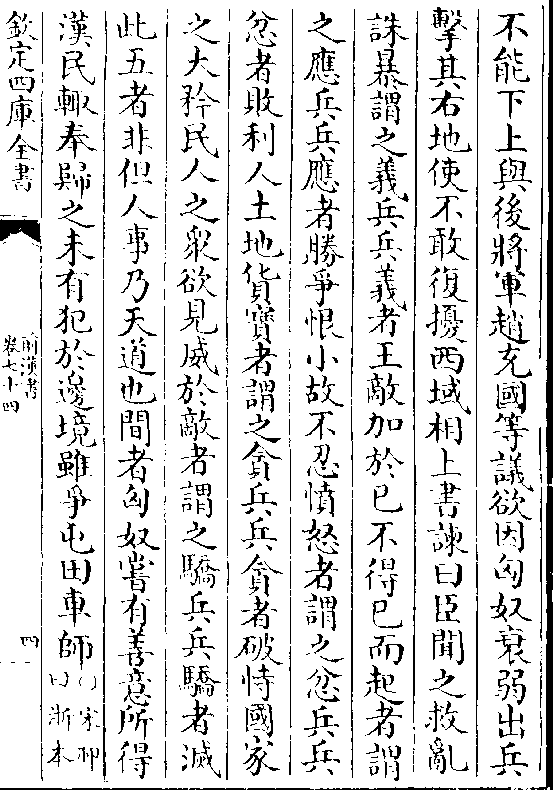 不能下上與後將軍趙充國等議欲因匈奴衰弱出兵
擊其右地使不敢復擾西域相上書諫曰臣聞之救亂
誅暴謂之義兵兵義者王敵加於已不得已而起者謂
之應兵兵應者勝爭恨小故不忍憤怒者謂之忿兵兵
忿者敗利人土地貨寳者謂之貪兵兵貪者破恃國家
之大矜民人之衆欲見威於敵者謂之驕兵兵驕者滅
此五者非但人事乃天道也間者匈奴嘗有善意所得
漢民輒奉歸之未有犯於邊境雖爭屯田車師宋祁
曰浙本
欽定四庫全書
前漢書
卷七十四
四